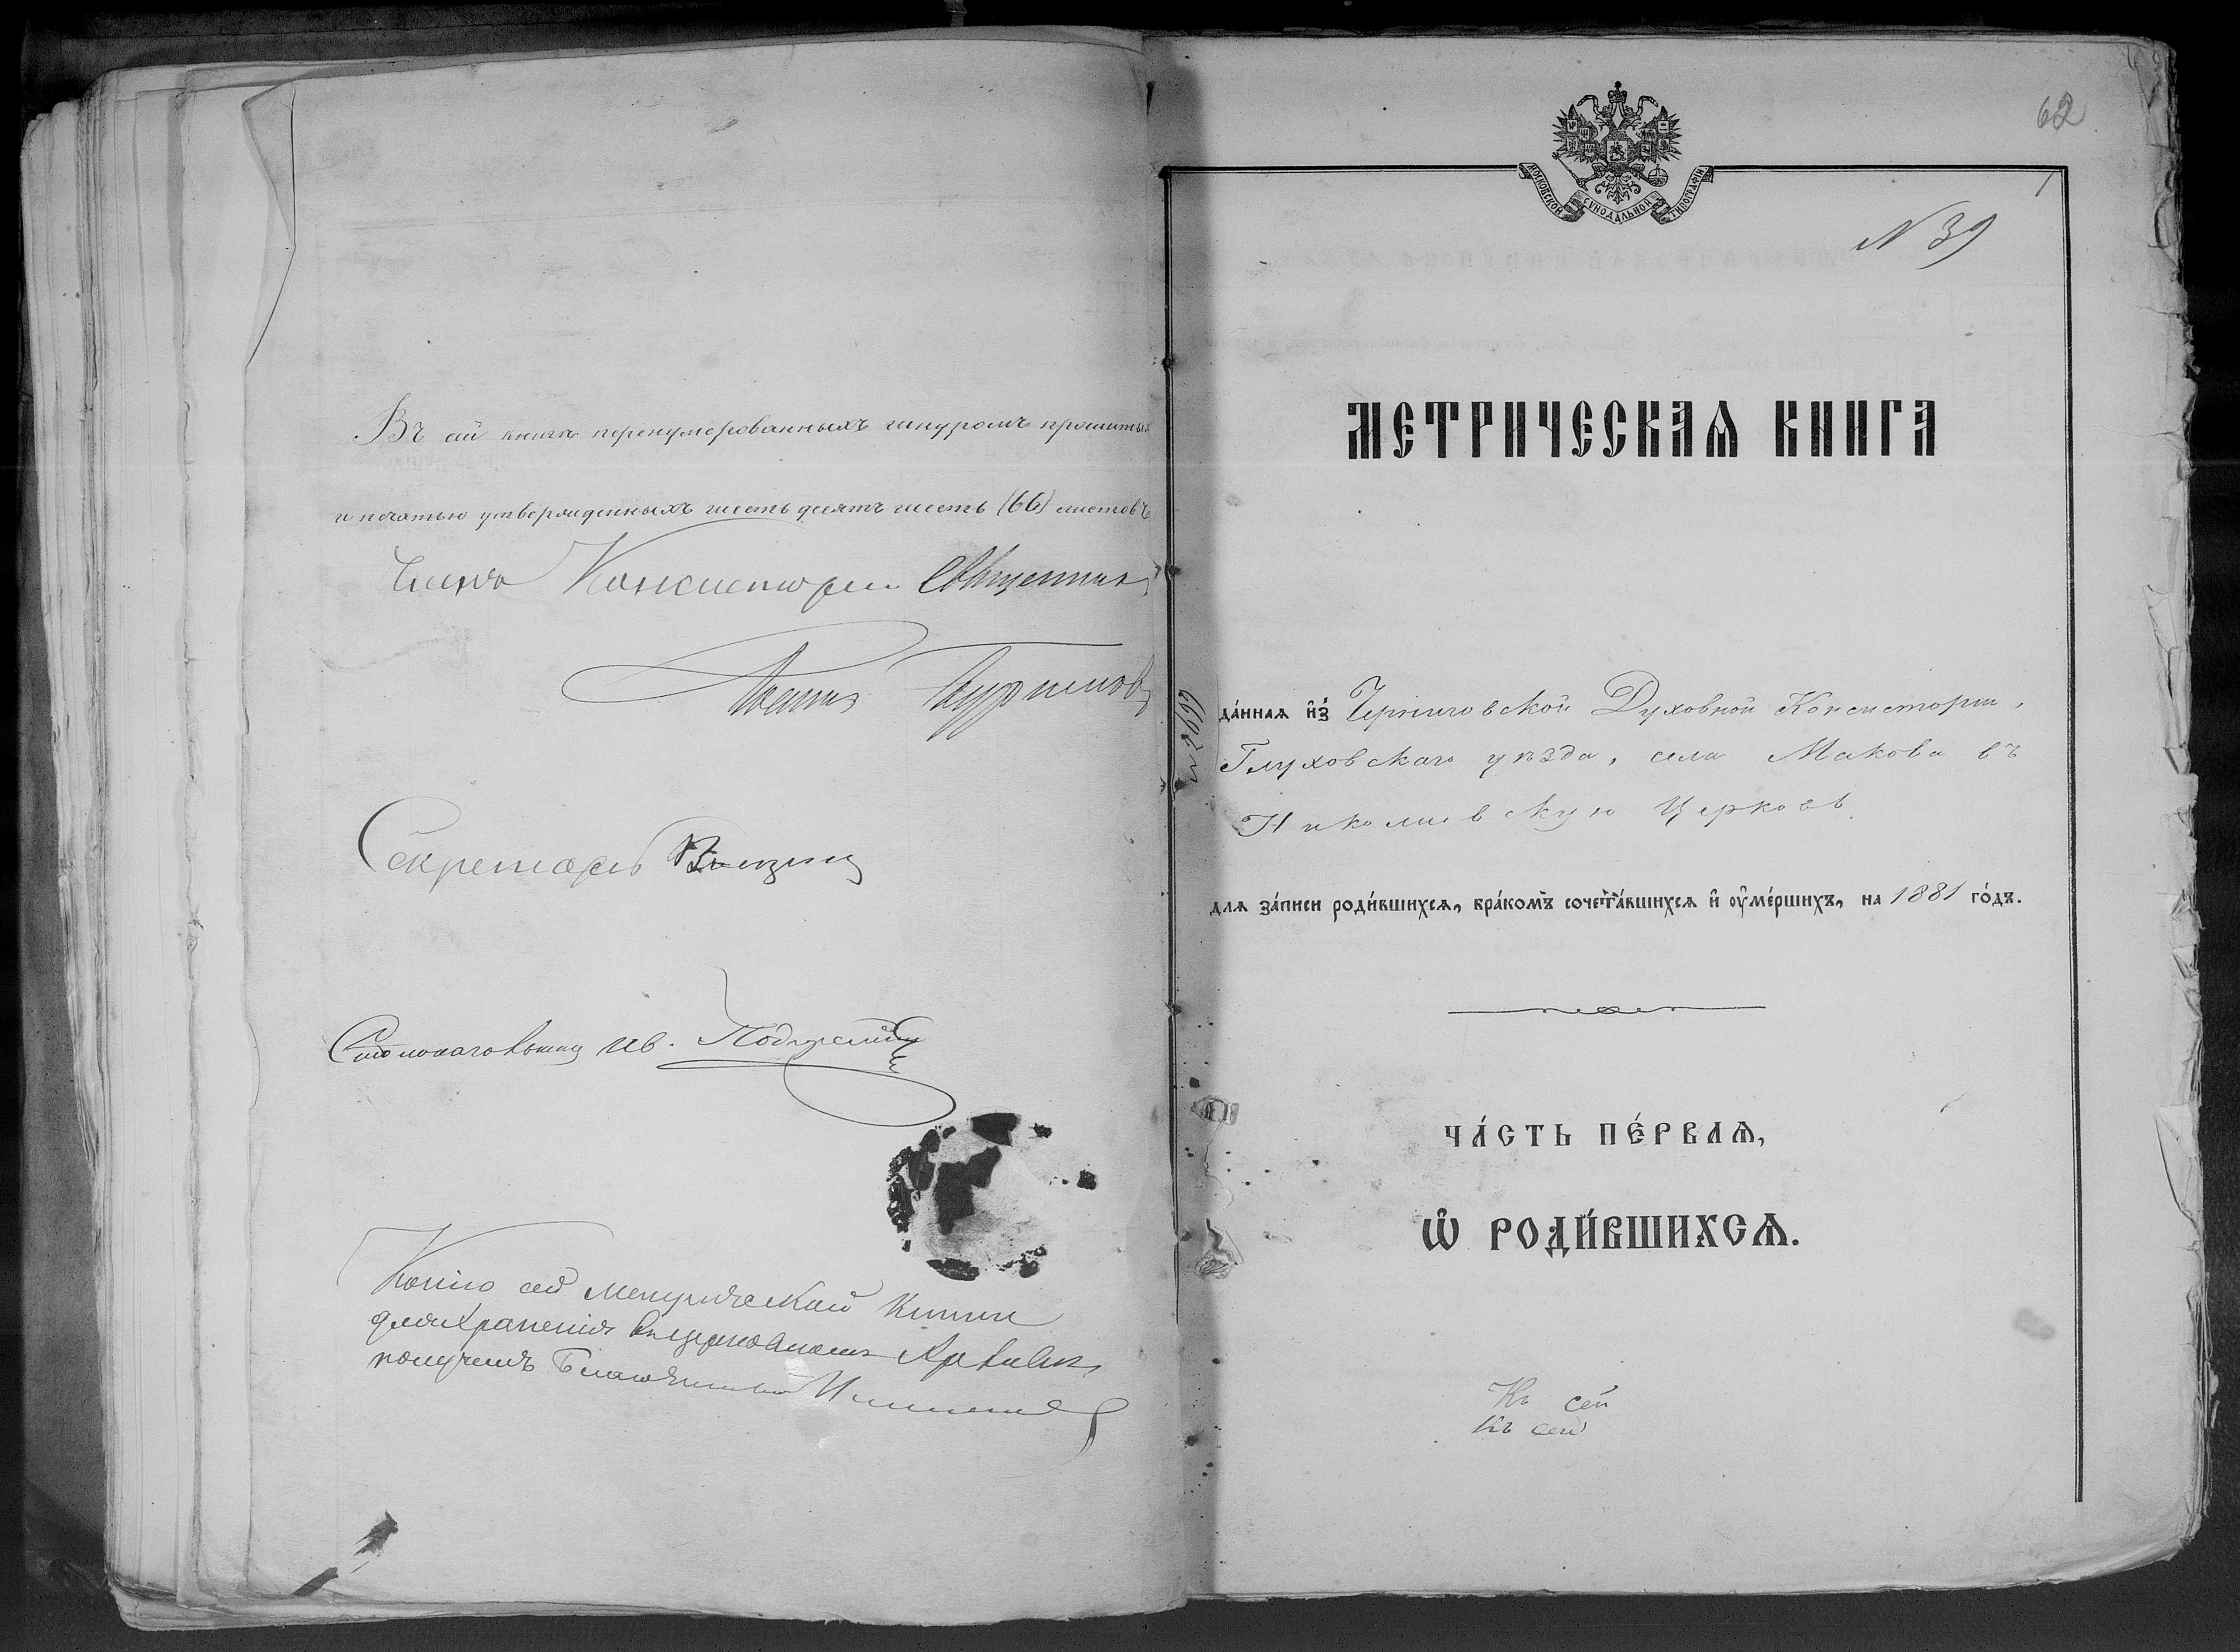 Въ сей книгѣ перенумерованныхъ шнуромъ прошитыхъ
и печатью утвержденныхъ шесть десятъ шесть (66) листовъ
Членъ Консисторіи Священникъ
Іоаннъ
Секретарь
Столоначальникъ Ив.
Копію сей метрической книги
для храненія въ церковномъ Архивѣ
получилъ
62
МОСКОВСКОЙ СѴНОДАЛЬНОЙ ТИПОГРАФІИ
1
N 39
МЕТРИЧЕСКАѦ КНИГА
да́ннаѧ и҆з̾ Черниговской Духовной Консисторіи,
Глуховскаго уѣзда, села Макова въ
Николаевскую Церковь.
длѧ за́писи роди́вшихсѧ, бра́комъ сочета́вшихсѧ и҆ ᲂу҆ме́ршихъ, на 1881 го́дъ.
ЧА́СТЬ ПЕ́РВАѦ,
Ѡ҆ РОДИ́ВШИХСѦ.
Къ сей
Къ сей